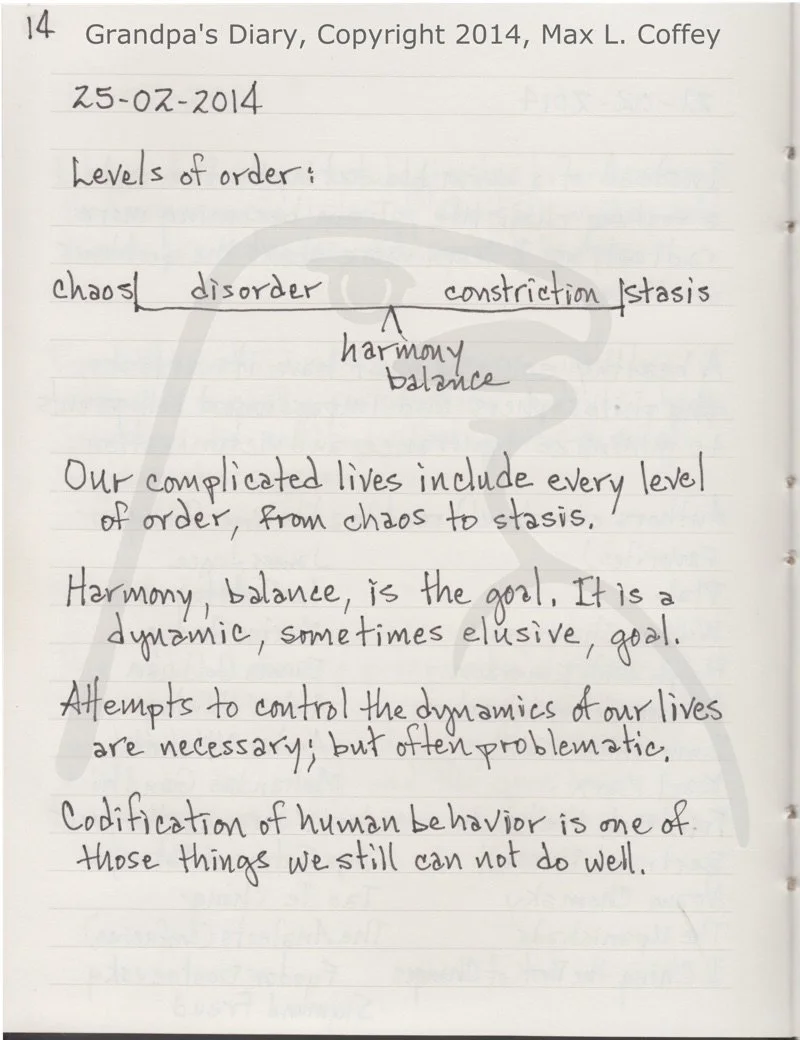 14 Grandpa's Diary, Copyright 2014, Max L. Coffey
25-02-2014
Levels of order:
chaos disorder constriction stasis
harmony
balance
Our complicated lives include every level
of order, from chaos to stasis.
Harmony, balance, is the goal. It is a
dynamic, sometimes elusive, goal.
Attempts to control the dynamics of our lives
are necessary; but often problematic.
Codification of human behavior is one of
those things we still can not do well.